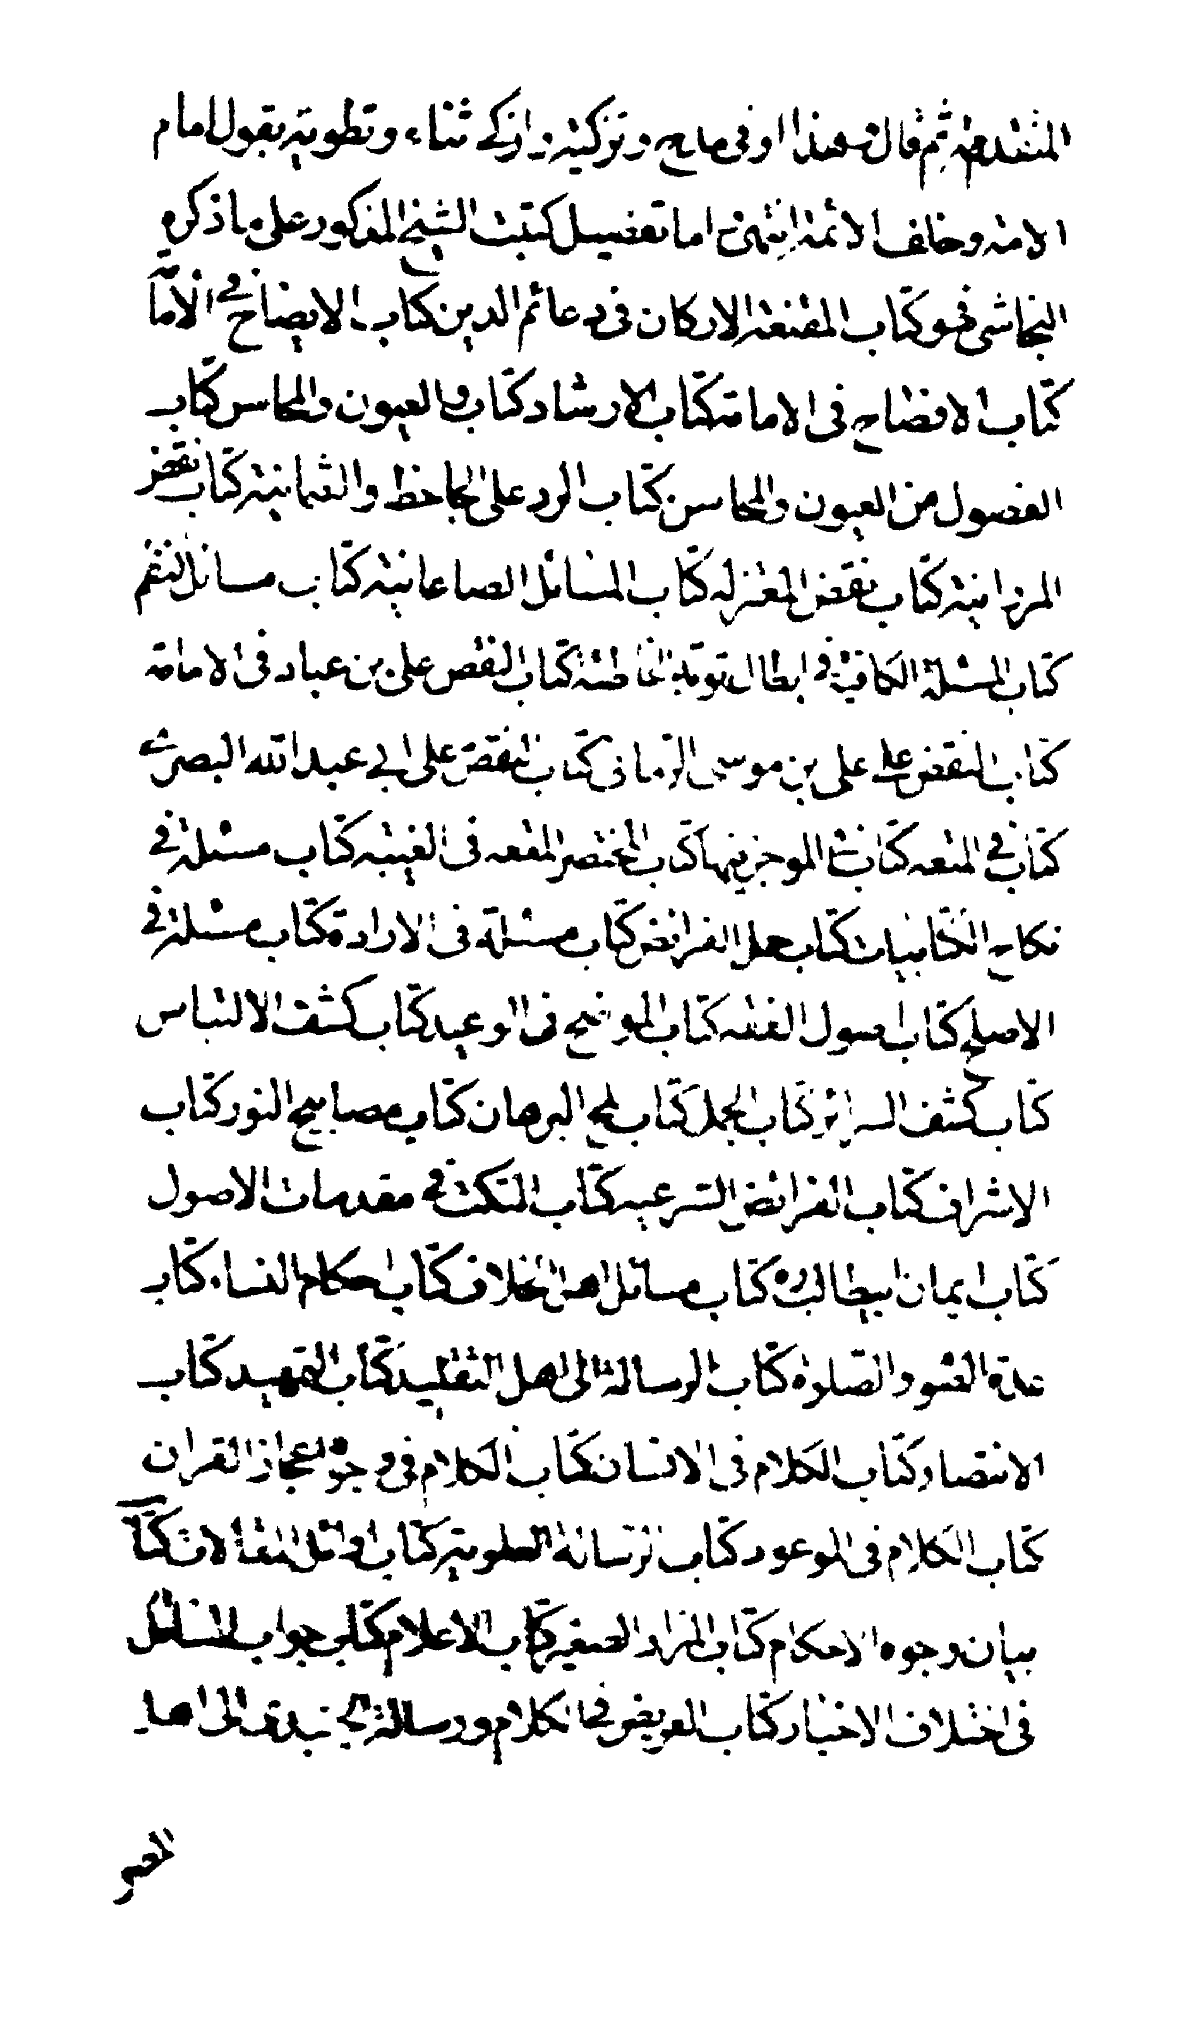 المتقدمة ثم قال وهذا اوفى مدح وتزكية وازكى ثناء وتطوية بقول امام
الامة وخلف الائمة انتهى اما تفصيل كتب الشيخ المذكور على ما ذكره
النجاشى فهو كتاب المقنعة الاركان فى دعائم الدين كتاب الايضاح فى الامامة
كتاب الافصاح فى الامامة كتاب الارشاد كتاب والعيون والمحاسن كتاب
الفصول من العيون والمحاسن كتاب الرد على الجاحظ والعثمانية كتاب نقض
المروانية كتاب نقض المعتزله كتاب المسائل الصاغانية كتاب مسائل النظم
كتاب المسئلة الكافية فى ابطال توبة الخاطئة كتاب النقض على بن عباد فى الامامة
كتاب النقض على على بن موسى الرمانى كتاب النقض على ابى عبد الله البصرى
كتاب فى المتعه كتاب الموجز فيها كتاب المختصر المتعه فى الغيبته كتاب مسئلة فى
نكاح الكتابيات كتاب جمل الفرائض كتاب مسئلة فى الارادة كتاب مسئلة فى
الاصلح كتاب اصول الفقه كتاب الموضح فى الوعيد كتاب كشف الالتباس
كتاب كشف السرائر كتاب الجمل كتاب لمح البرهان كتاب مصابيح النور كتاب
الاشراف كتاب الفرائض الشرعيه كتاب النكت فى مقدمات الاصول
كتاب ايمان ابيطالب ره كتاب مسائل اهل الخلاف كتاب احكام النساء كتاب
عدة الصوم والصلوة كتاب الرسالة الى اهل التقليد كتاب التمهيد كتاب
الانتصار كتاب الكلام فى الانسان كتاب الكلام فى وجوه اعجاز القران
كتاب الكلام فى الموعود كتاب الرسالة العلوية كتاب اوائل المقالات كتاب
بيان وجوه الاحكام كتاب المزار الصغير كتاب الاعلام كتاب جواب المسائل
فى اختلاف الاخبار كتاب العويص فى الكلام ورسالة الجنيدى الى اهل
المصر